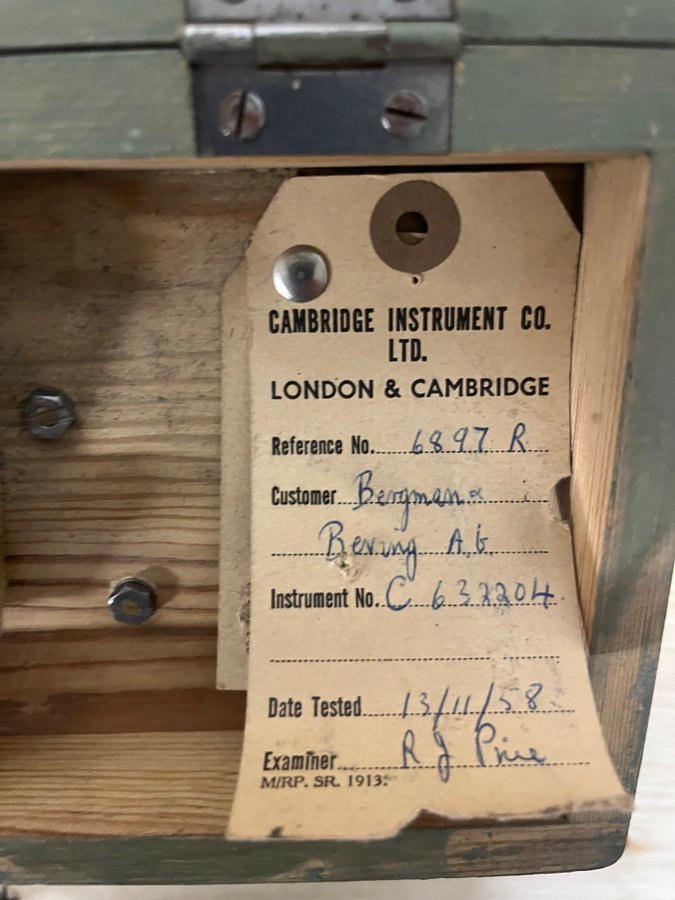 CAMBRIDGE INSTRUMENT CO.
LTD.
LONDON & CAMBRIDGE
Reference No. 6897 R
Customer Bergman &
Beving A.B.
Instrument No. C 632204.
Date Tested 13/11/58.
Examiner R J Price
M/RP. SR. 1913.